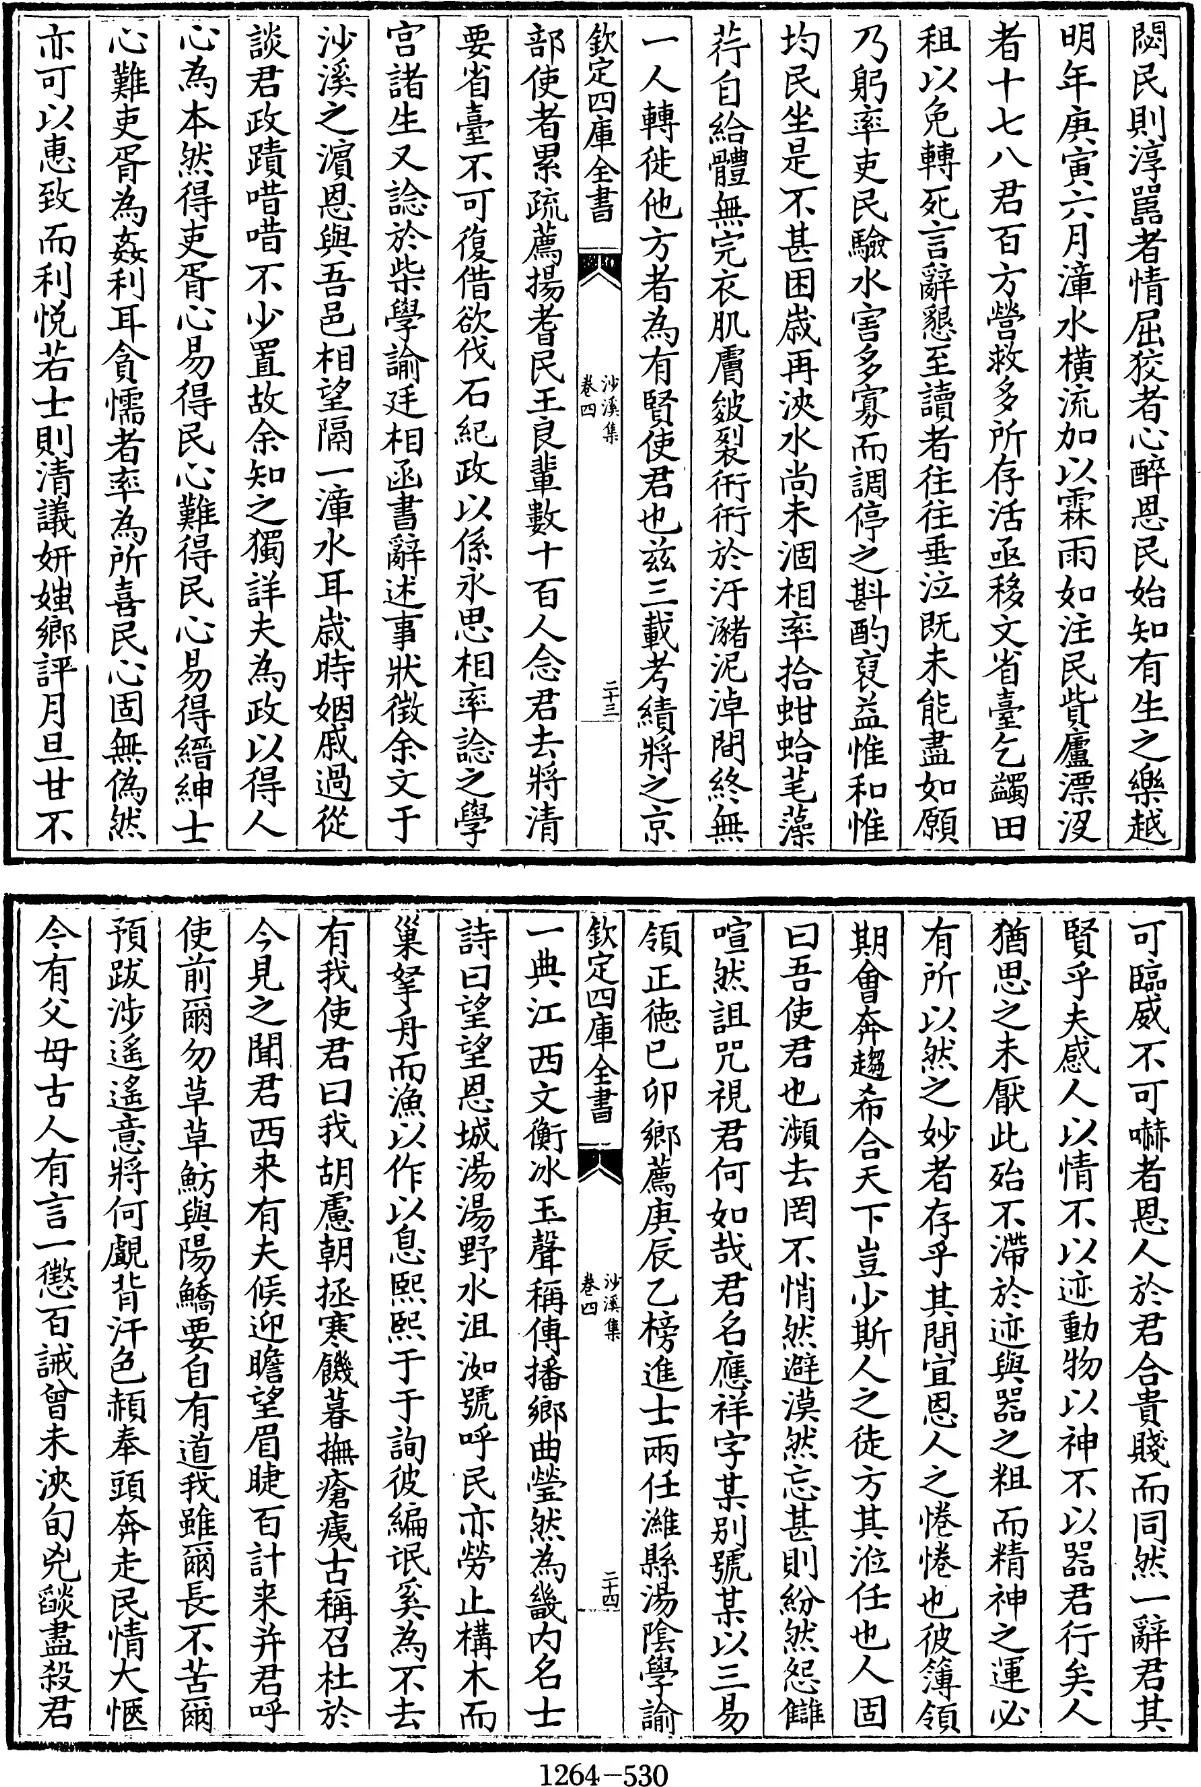 閟民則淳嚚者情屈狡者心醉恩民始知有生之樂越
明年庚寅六月漳水橫流加以霖雨如注民貲廬漂沒
者十七八君百方營救多所存活亟移文省臺乞蠲田
租以免轉死言辭懇至讀者往往垂泣既未能盡如願
乃躬率吏民驗水害多寡而調停之斟酌裒益惟和惟
均民坐是不甚困歲再浹水尚未涸相率拾蚶蛤芼藻
荇自給體無完衣肌膚皴裂衎衎於汙瀦泥淖間終無
一人轉徙他方者為有賢使君也兹三載考績將之京
欽定四庫全書
沙溪集
卷四
二十三
部使者累疏薦揚耆民王良輩數十百人念君去將清
要省臺不可復借欲伐石紀政以係永思相率諗之學
宮諸生又諗於柴學諭廷相函書辭述事狀徵余文于
沙溪之濵恩與吾邑相望隔一漳水耳歲時姻戚過從
談君政蹟唶唶不少置故余知之獨詳夫為政以得人
心為本然得吏胥心易得民心難得民心易得縉紳士
心難吏胥為姦利耳貪懦者率為所喜民心固無偽然
亦可以惠致而利悅若士則清議妍媸鄉評月旦甘不
可臨威不可嚇者恩人於君合貴賤而同然一辭君其
賢乎夫感人以情不以迹動物以神不以器君行矣人
猶思之未厭此殆不滯於迹與器之粗而精神之運必
有所以然之妙者存乎其間宜恩人之惓惓也彼簿領
期會奔趨希合天下豈少斯人之徒方其涖任也人固
曰吾使君也瀕去罔不悄然避漠然忘甚則紛然怨讎
喧然詛咒視君何如哉君名應祥字某别號某以三易
領正德己卯鄉薦庚辰乙榜進士兩任濰縣湯陰學諭
欽定四庫全書
沙溪集
卷四
二十四
一典江西文衡冰玉聲稱傳播鄉曲瑩然為畿内名士
詩曰望望恩城湯湯野水沮洳號呼民亦勞止構木而
巢拏舟而漁以作以息熙熙于于詢彼編氓奚為不去
有我使君曰我胡慮朝拯寒饑暮撫瘡痍古稱召杜於
今見之聞君西来有夫候迎瞻望眉睫百計来并君呼
使前爾勿草草魴與陽鱎要自有道我雖爾長不苦爾
預跋涉遙遙意將何覷背汗色赬奉頭奔走民情大愜
今有父母古人有言一懲百誡曾未浹旬兇燄盡殺君
1264—530